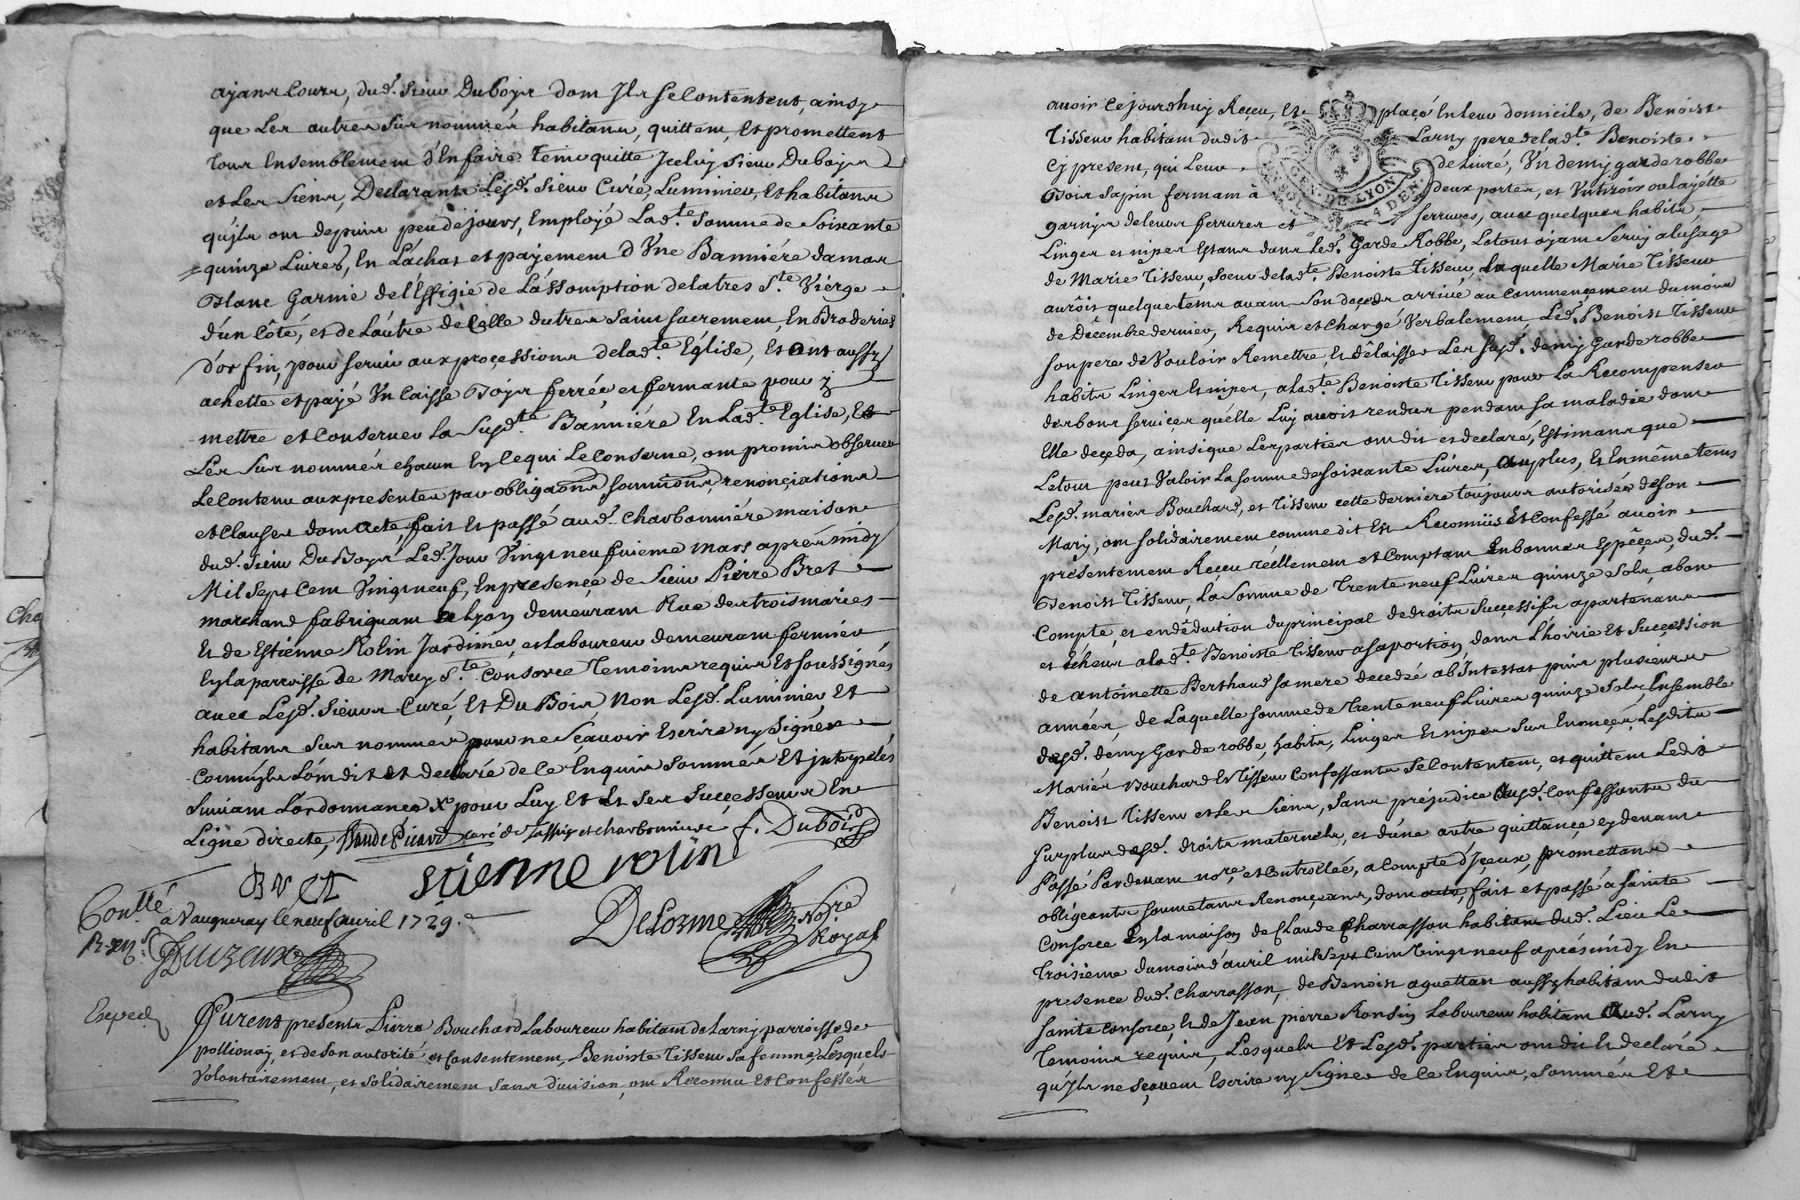 ayans cours, dud. sieur Duboys dont Ils se Contentent, ainsy
que Les autres sur nommés habitans, quittent, Et promettent
tous Ensemblement d'En faire tenir quitte Jceluy sieur Duboys
et Les siens, Declarants Lesd. sieur Curé, Luminier, Et habitans
qu'jls ont depuis peu de jours, Employé Lad.te somme de soixante
quinze Livres, En L'áchat et payement d'Vne Banniére damas
Blanc Garnie de l'Effigie de L'ássomption de la tres S.te Vierge
d'un Côté, et de L'autre de Celle du tres saint sacrement, En Broderies
d'or fin, pour servir aux processions de lad.te Eglise, Et ont aussy
achetté et payé Vn Caisse Boys ferrée et fermante pour y
mettre et Conserver La susd.te Banniére En Lad.te Eglise, Et
Les sur nommés chacun En Ce qui Le Conserne, ont promis observer
Le Contenu aux presentes par obligaõns soumiõns, renonciations
et Clauses dont acte, fait Et passé aud. Charbonniére maison
dud. sieur DuBoys Led. Jour Vingt neufuieme mars aprés midy
Mil Sept Cent Vingt neuf, En presençe de sieur Pierre Bret
marchand fabriquant a Lyon demeurant Rue des trois maries
Et de Estienne Rolin Jardinier, et laboureur demeurant fermier
En la parroisse de Marcy S.te Consorce temoins requis Et soussignés
avec Lesd. sieurs Curé, Et Du Bois Non Lesd. Luminier Et
habitans sur nommés pour ne Sçavoir Escrire ny Signer
Comm'jls L'ont dit Et declaré de Ce Enquis sommés Et jnterpelés
suivant L'ordonnance X pour Luy Et Et ses successeurs En
Ligne directe, curé de Tassin et charbonniere f. DuBois
Bret stienne rolin
Con.llé
a Vaugneray le neuf avril 1729.
Delorme No.re
Royal
Exped.
Furent presents Pierre Bouchard Laboureur habitant de Larny parroisse de
pollionay, et de Son autorité et Consentement, Benoiste Tisseur sa femme, Lesquels
Volontairement, et solidairement sans division, ont Reconnu Et Confessés
avoir Cejourdhuy Receu, Et placé En leur domicile, de Benoist
Tisseur habitant dudit Larny pere de lad.te Benoiste
Cy present, qui Leur de Livré, Vn demy garderobbe
Bois sapin fermant à deux portes, et Vn tiroir ou layette
garnys de leurs ferrures et serrures, avec quelques habits,
Linges et nipes Estans dans led. Garde Robbe, Le tout áyant servy a lusage
de Marie Tisseur, soeur de lad.te Benoiste Tisseur, Laquelle Marie Tisseur
aurôit quelque tems avant son deçeds arrivé au Commençement du mois
de Décembre dernier, Requis et Chargé Verbalement Led. Benoist Tisseur
son pere de Vouloir Remettre, Et délaisser Les susd. demy Garde robbe
habits Linges Et nipes, a lad.te Benoiste Tisseur pour La Recompenser
des bons services qu'elle Luy auroit rendus pendant sa maladie dont
Elle deçeda, ainsi que Les parties ont dit et declaré, Estimans que
Le tout peut Valoir La somme de soixante Livres, au plus, Et En même tems
Lesd. mariés Bouchard, et Tisseur cette derniere toujours autorisée de son
Mary, ont solidairement comme dit Est Reconnüs Et Confessé avoir
presentement Receu réellement et Comptant En bonnes espêces, dud.
Benoist Tisseur, La somme de Trente neuf Livres quinze sols, a bon
Compte, et en déduction du principal de droits successifs apartenans
et Echeus a lad.te Benoiste Tisseur a sa portion, dans L'hoirie Et succession
de antoinette Berthaud sa mere decedée ab Intestat puis plusieurs
années, de Laquelle somme de Trente neuf Livres quinze sols Ensemble
desd. demy Garde robbe, habits, Linges Et nipes sur Enoncés, Lesdits
Mariés Bouchard Et Tisseur Confessants se Contentent, et quittent Ledit
Benoist Tisseur et Les siens, sans préjudice Ausd. Confessants du
surplus desd. droits maternels, et d'une autre quittance cy devant
Passé Pardevant no.re, et Controllée, a Compte d'jceux, promettans
obligeants soumetans Renonçeans, dont acte, fait et passé à sainte
Consorce En la maison de Claude Charrasson habitant dud. Lieu Le
Troisieme du mois d'avril mil sept Cent Vingt neuf aprés midy En
presence dud. Charrasson, de Benoist aguettan aussy habitant dudit
sainte Consorce, Et de Jean pierre Ronsin Laboureur habitant Aud. Larny
Temoins requis, Lesquels Et Lesd. parties ont dit Et declaré
qu'jls ne sçavent Escrire ny signer de Ce Enquis, sommés Et
GEN. DE LYON
4 DEN.